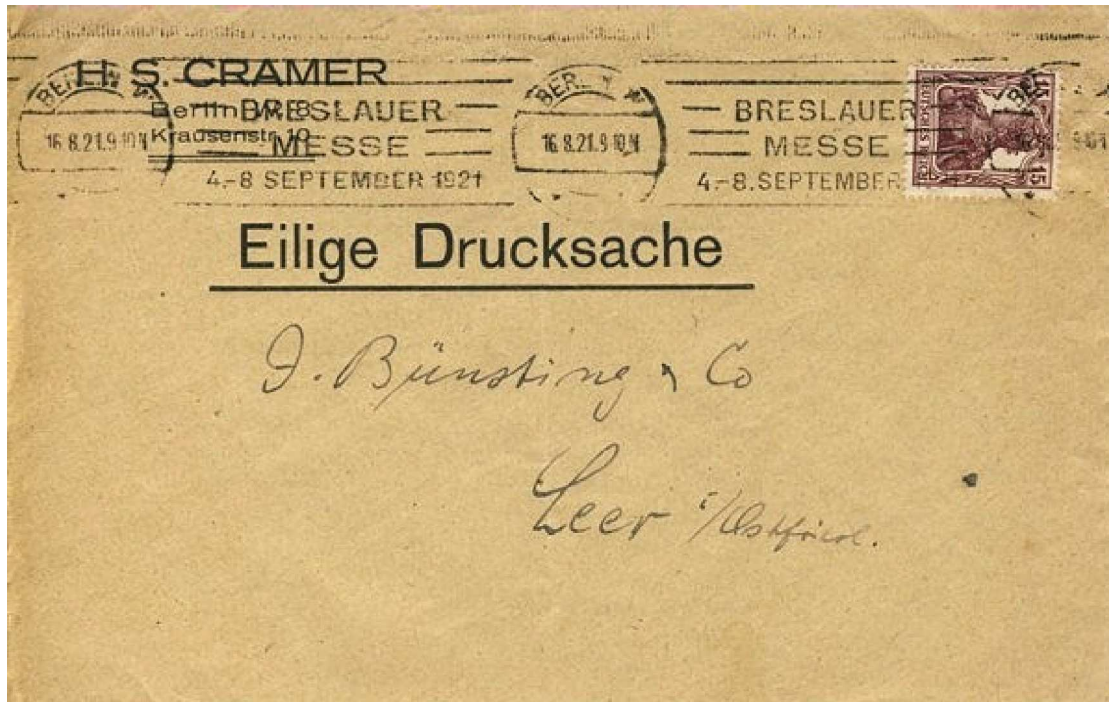 H. S. CRAMER
Berlin W. 8
Krausenstr. 10
BERLIN W
16.8.21.9-10 N
BRESLAUER
MESSE
4.-8 SEPTEMBER 1921
BERLIN W
16.8.21.9-10 N
BRESLAUER
MESSE
4.-8. SEPTEMBER
DEUTSCHES REICH
15
15
Eilige Drucksache
J. Bünsting & Co
Leer i/Ostfriesl.